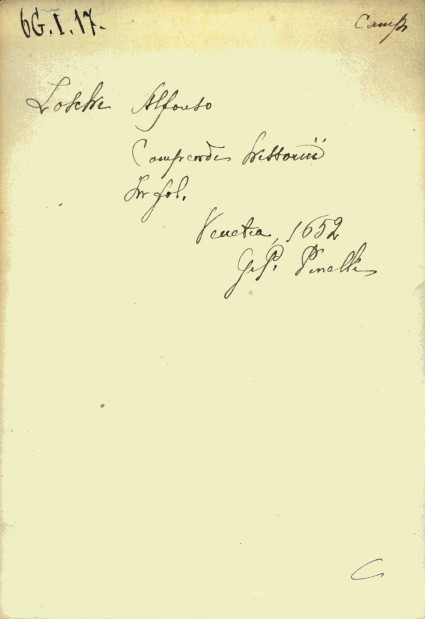 6G.I.17.
Camp
Loschi Alfonso
Compendi historici
In fol.
Venetia, 1652
G. P. Pinelli
C